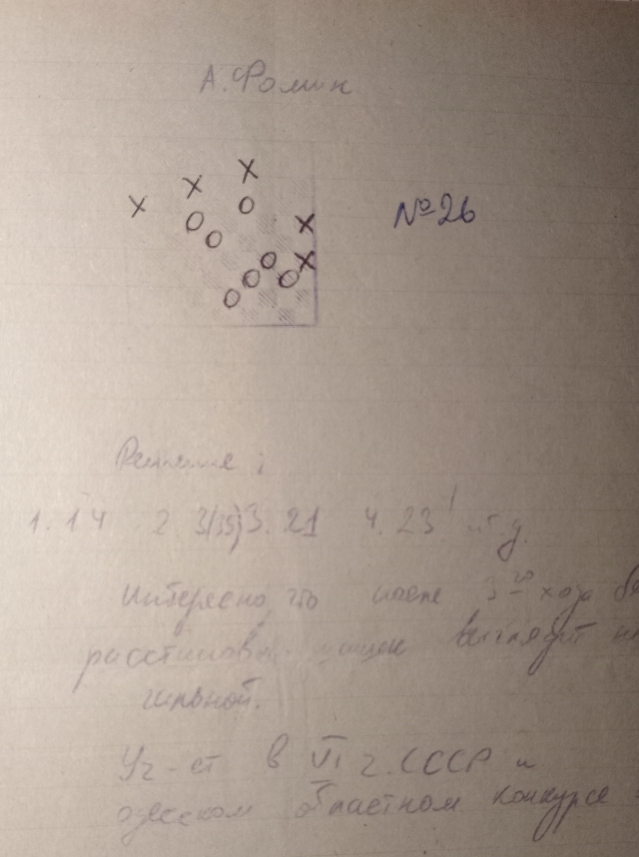 А. Фомин
№ 26
Решение:
1. 14 2. 3(35) 3. 21 4. 23! и т д.
Интересно, что после 3-го хода
расстановка шашек выглядит
Уч-ст в VI ч. СССР и
одесском областном конкурсе